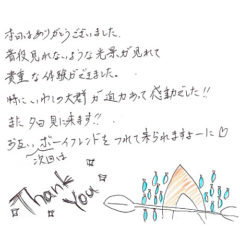 本日はありがとうございました。
普段見れないような光景が見れて
貴重な体験ができました。
特にいわしの大群が迫力あって感動でした!!
また夕日見に来ます!!
お互い、ボーイフレンドをつれて来られますよーに♡
次回は
Thank You